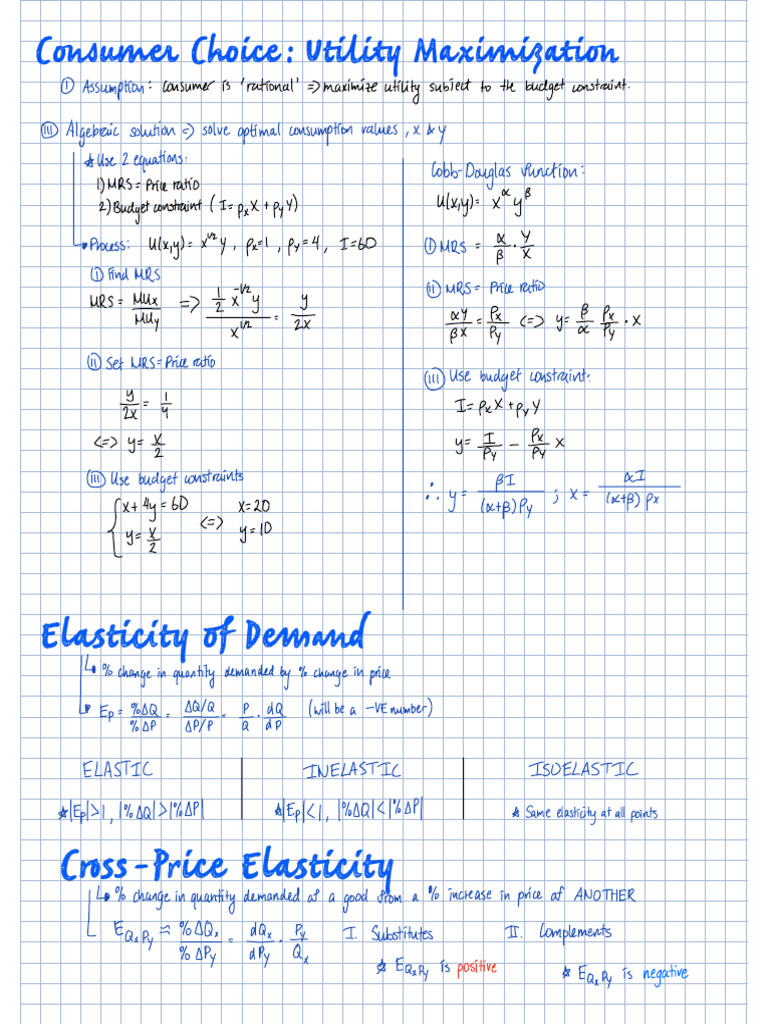 Consumer Choice: Utility Maximization
① Assumption: consumer is 'rational' => maximize utility subject to the budget constraint.
Ⅲ Algebraic solution => solve optimal consumption values, x & y
* Use 2 equations:
1) MRS = Price ratio
2) Budget constraint (I = pxX + pyY)
Process: U(x,y) = x^1/2 y, px=1, py=4, I=60
① Find MRS
MRS = MUx/MUy => (1/2 x^-1/2 y)/(x^1/2) = y/2x
Ⅱ Set MRS = Price ratio
y/2x = 1/4
<=> y = x/2
Ⅲ Use budget constraints
{ x + 4y = 60
y = x/2
<=> x=20
y=10
Cobb-Douglas function:
U(x,y) = x^α y^β
① MRS = α/β · y/x
Ⅱ MRS = Price ratio
αy/βx = Px/Py <=> y = β/α Px/Py · x
Ⅲ Use budget constraint:
I = pxX + pyY
y = I/Py − Px/Py x
∴ y = βI/((α+β)Py) ; x = αI/((α+β)px)
Elasticity of Demand
↳ % change in quantity demanded by % change in price
↳ Ep = %ΔQ/%ΔP = (ΔQ/Q)/(ΔP/P) = P/Q · dQ/dP (will be a -VE number)
ELASTIC
* |Ep|>1, |%ΔQ|>|%ΔP|
INELASTIC
* |Ep|<1, |%ΔQ|<|%ΔP|
ISOELASTIC
* Same elasticity at all points
Cross-Price Elasticity
↳ % change in quantity demanded of a good from a % increase in price of ANOTHER
E QxPy ≈ %ΔQx/%ΔPy = dQx/dPy · Py/Qx
I. Substitutes
* E QxPy is positive
II. Complements
* E QxPy is negative